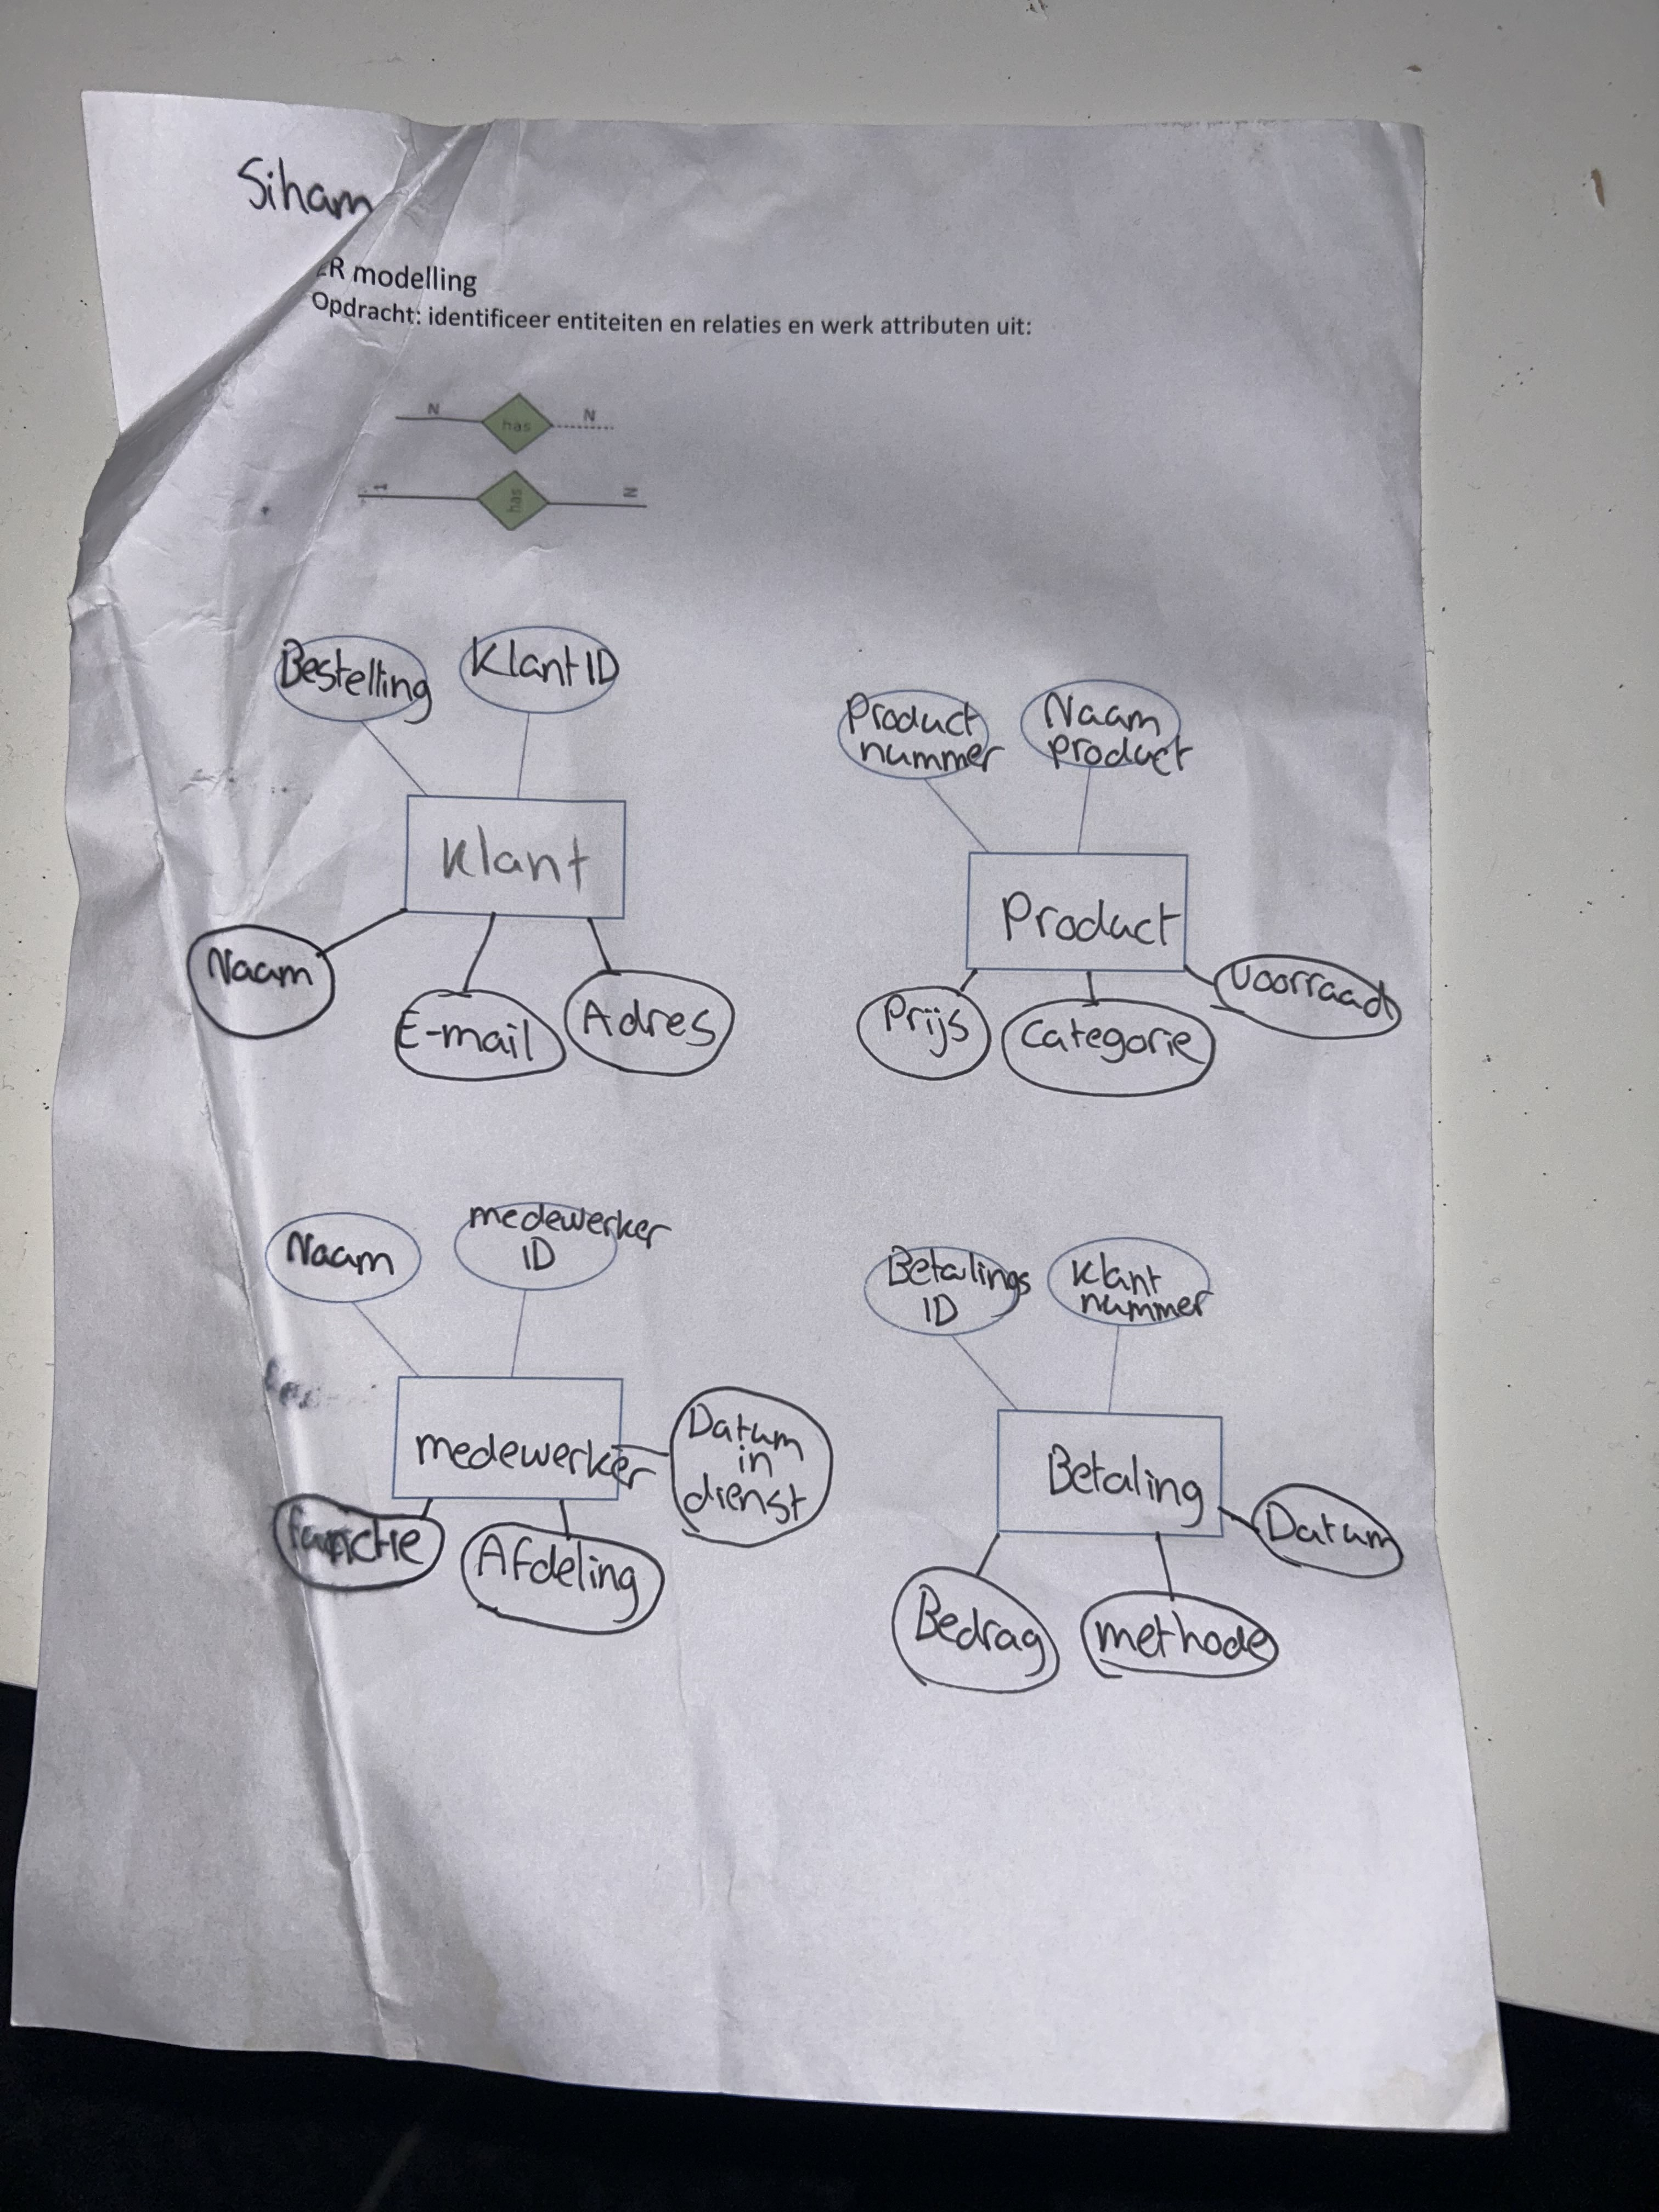 Siham
ER modelling
Opdracht: identificeer entiteiten en relaties en werk attributen uit:
N has N
1 has N
Bestelling
Klant ID
Klant
Naam
E-mail
Adres
Product
nummer
Naam
product
Product
Prijs
Categorie
Voorraad
Naam
medewerker
ID
medewerker
Datum
in
dienst
functie
Afdeling
Betalings
ID
Klant
nummer
Betaling
Datum
Bedrag
methode